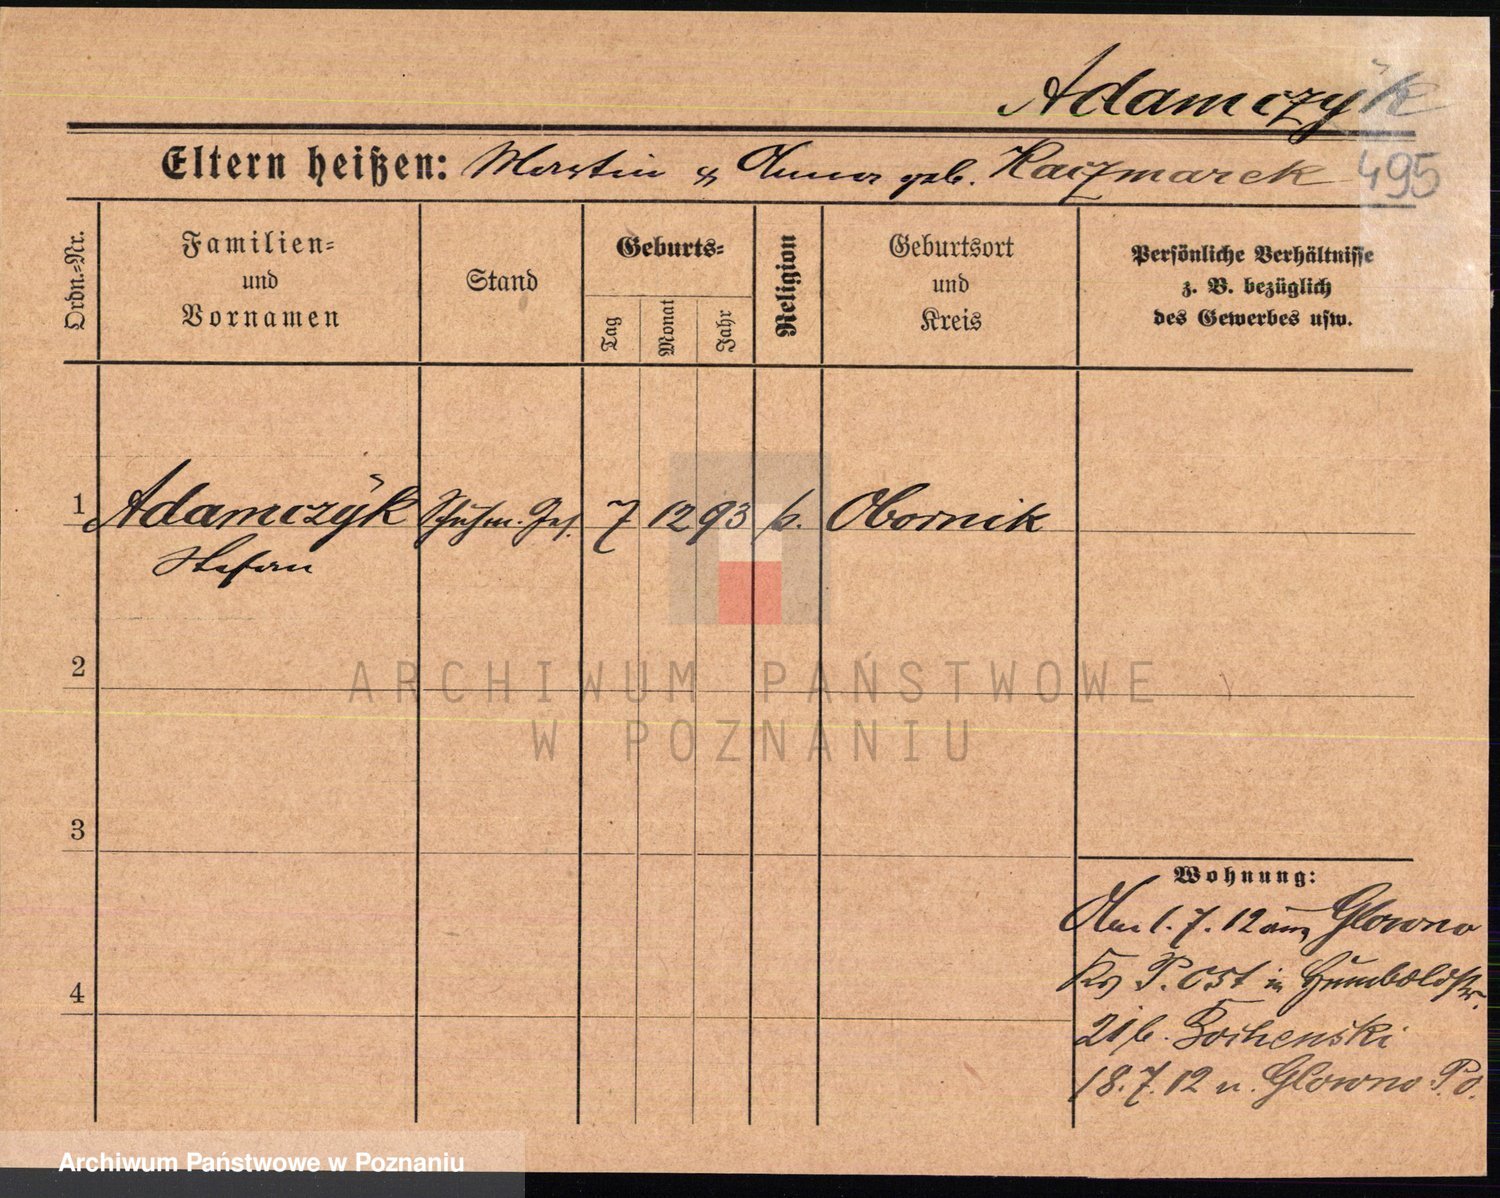 Adamczyk
Eltern heißen: Martin & Anna geb. Kaczmarek 495
Ordn.=Nr.
Familien=
und
Vornamen
Stand
Geburts=
Tag
Monat
Jahr
Religion
Geburtsort
und
Kreis
Persönliche Verhältnisse
z. B. bezüglich
des Gewerbes usw.
1 Adamczyk Schuhm. Ges. 7 12 93 k. Obornik
Stefan
2
ARCHIWUM PAŃSTWOWE
W POZNANIU
3
Wohnung:
Am 1.7.12 aus Glowno
Krs P. Ost in Humboldstr.
21 b. Bochenski
4
18.7.12 n. Glowno P.O.
Archiwum Państwowe w Poznaniu